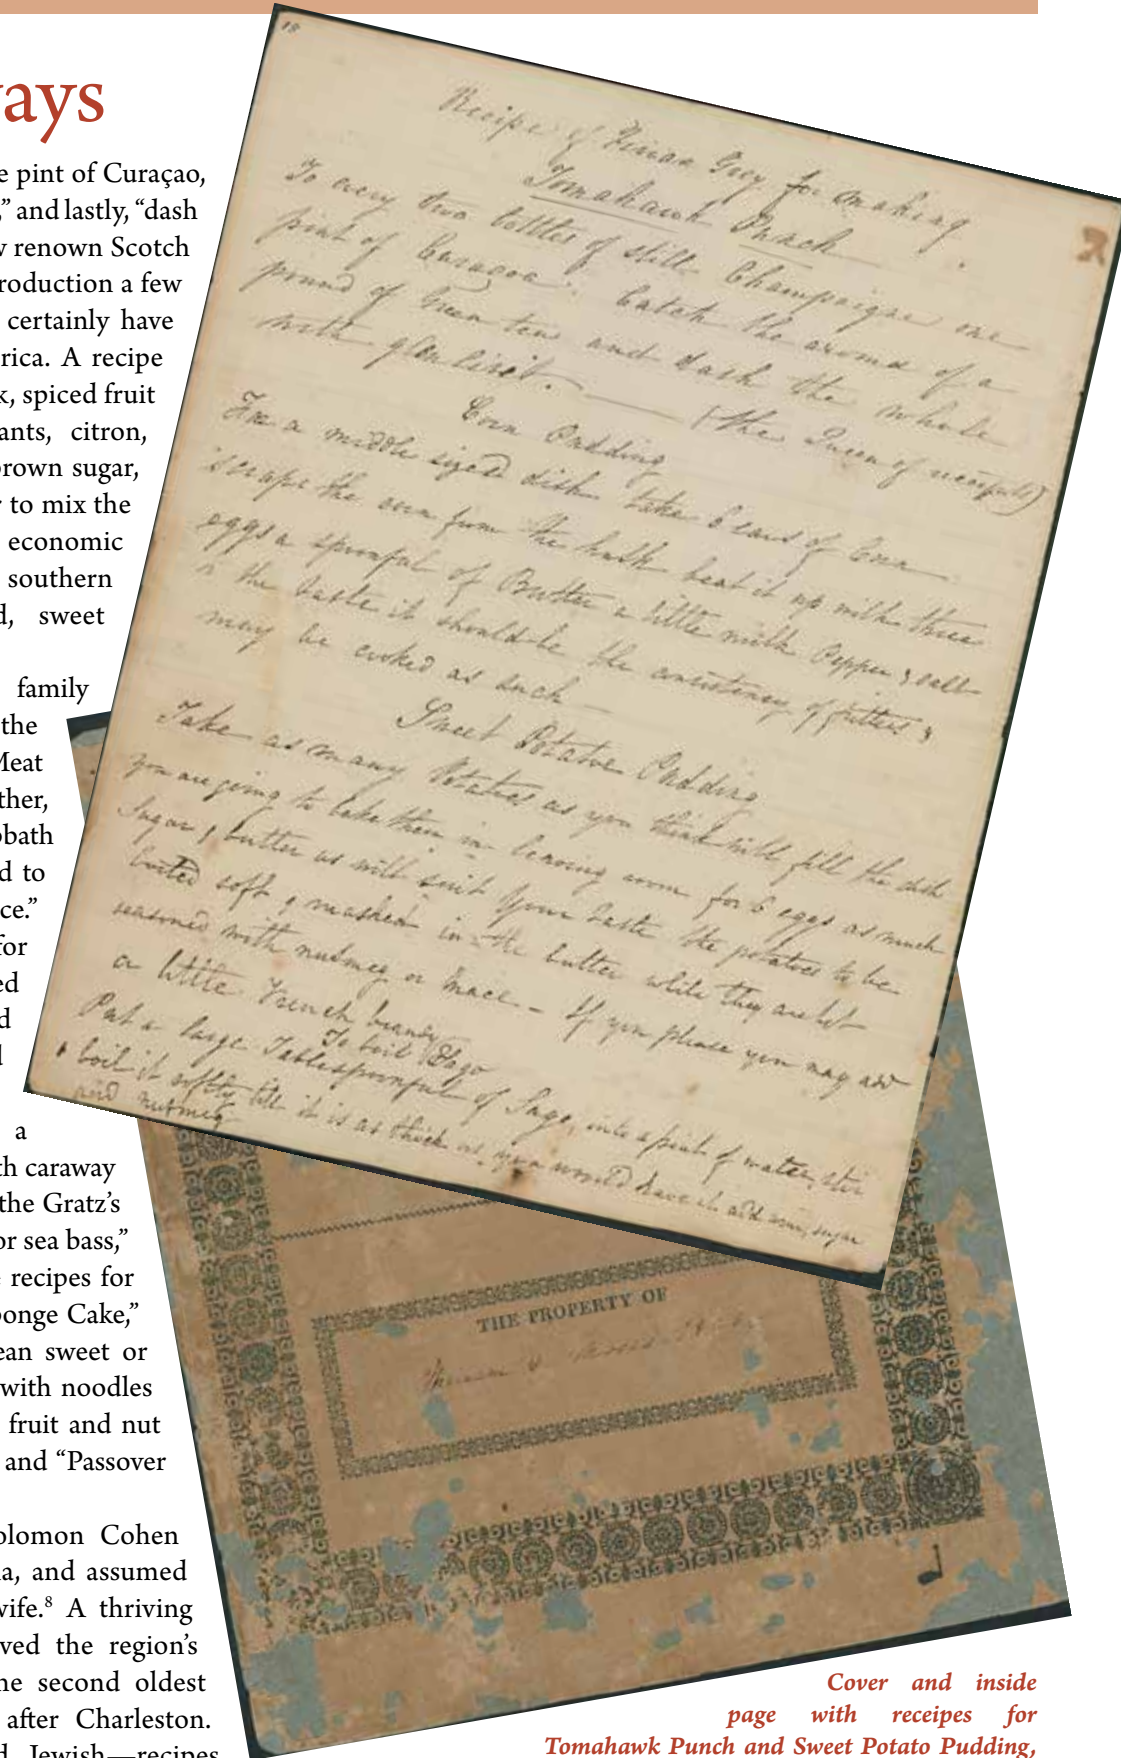 ays
e pint of Curaçao,
,” and lastly, “dash
w renown Scotch
roduction a few
certainly have
rica. A recipe
k, spiced fruit
ants, citron,
brown sugar,
r to mix the
economic
southern
d, sweet
family
the
Meat
ther,
bath
d to
ce.”
for
ed
d
l
a
th caraway
the Gratz’s
or sea bass,”
e recipes for
ponge Cake,”
ean sweet or
with noodles
fruit and nut
and “Passover
olomon Cohen
ia, and assumed
wife.8 A thriving
ved the region’s
ne second oldest
after Charleston.
d Jewish—recipes
18
Recipe of Grey for making
Tomahawk Punch
To every two bottles of still Champaigne one
pint of Curacoa. Catch the aroma of a
pound of Green tea and dash the whole
with glenlivit. (the Queen of receipts)
Corn Pudding
For a middle sized dish take 6 ears of Corn
scrape the corn from the husk beat it up with three
eggs a spoonful of Butter a little milk Pepper & salt
to the taste it should be the consistency of fritters &
may be cooked as such
Sweet Potatoe Pudding
Take as many Potatoes as you think will fill the dish
you are going to bake them in leaving room for 6 eggs as much
Sugar & butter as will suit your taste the potatoes to be
boiled soft & mashed in the butter while they are hot
seasoned with nutmeg or mace – If you please you may add
a little French brandy
To boil Sago
Put a large Tablespoonful of Sago, into a pint of water, stir
& boil it softly till it is as thick as you would have it add wine, sugar
and nutmeg
THE PROPERTY OF
Cover and inside
page with receipes for
Tomahawk Punch and Sweet Potato Pudding,